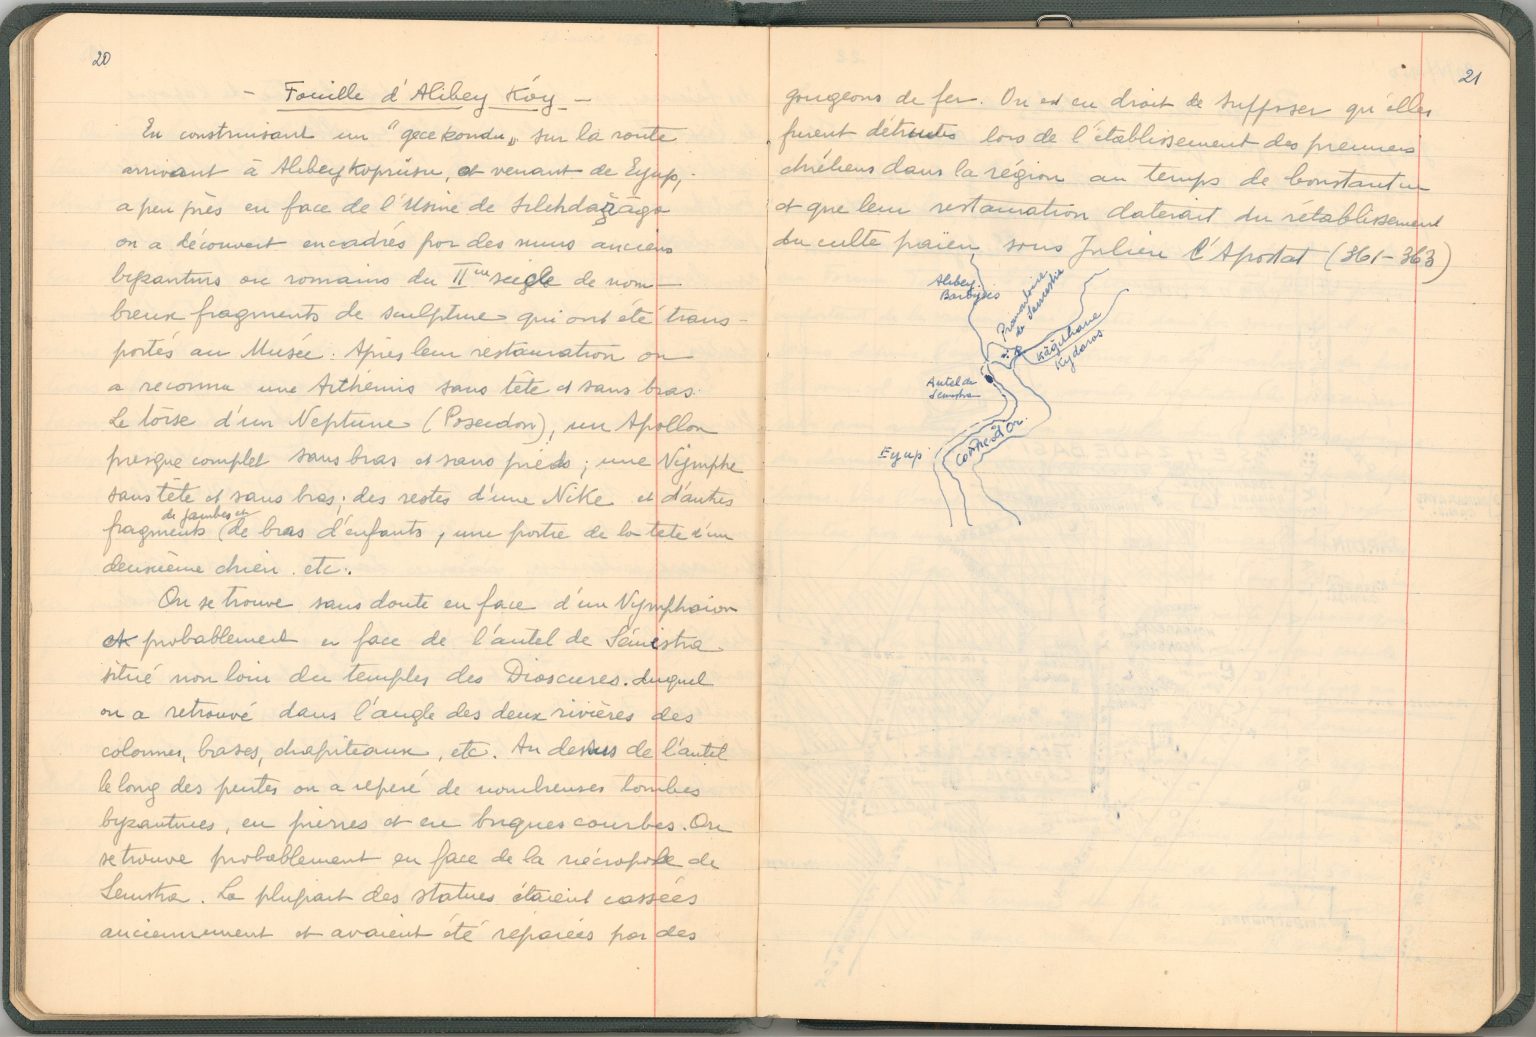 20
- Fouille d'Alibey Köy -
En construisant un "gecekondu" sur la route
arrivant à Alibeykoprüsu, et venant de Eyup,
a peu près en face de l'Usine de Silehdarağa
on a découvert encadrés par des murs anciens
byzantins ou romains du II me siecle de nom-
breux fragments de sculpture qui ont été trans-
portés au Musée. Après leur restauration on
a reconnu une Arthémis sans tête et sans bras.
Le torse d'un Neptune (Poseidon), un Apollon
presque complet sans bras et sans pieds ; une Nymphe
sans tête et sans bras ; des restes d'une Niké et d'autres
de jambes et
fragments (de bras d'enfants, une partie de la tete d'un
deuxième chien. etc.
On se trouve sans doute en face d'un Nymphaion
et probablement en face de l'autel de Sémistra
situé non loin du temples des Dioscures. duquel
on a retrouvé dans l'angle des deux rivières des
colonnes, bases, chapiteaux, etc. Au dessus de l'autel
le long des pentes on a repéré de nombreuses tombes
byzantines, en pierres et en briques courbes. On
se trouve probablement en face de la nécropole de
Semistra. La plupart des statues étaient cassées
anciennement et avaient été réparées par des
21
gougeons de fer. On est en droit de supposer qu'elles
furent détruites lors de l'établissement des premiers
chrétiens dans la région au temps de Constantin
et que leur restauration daterait du rétablissement
du culte païen, sous Julien l'Apostat (361-363)
Alibey.
Barbyses
Promontoire
de Semestrie
Kâğithane
Kydaros
Autel de
Semistra
Corne d'Or.
Eyup